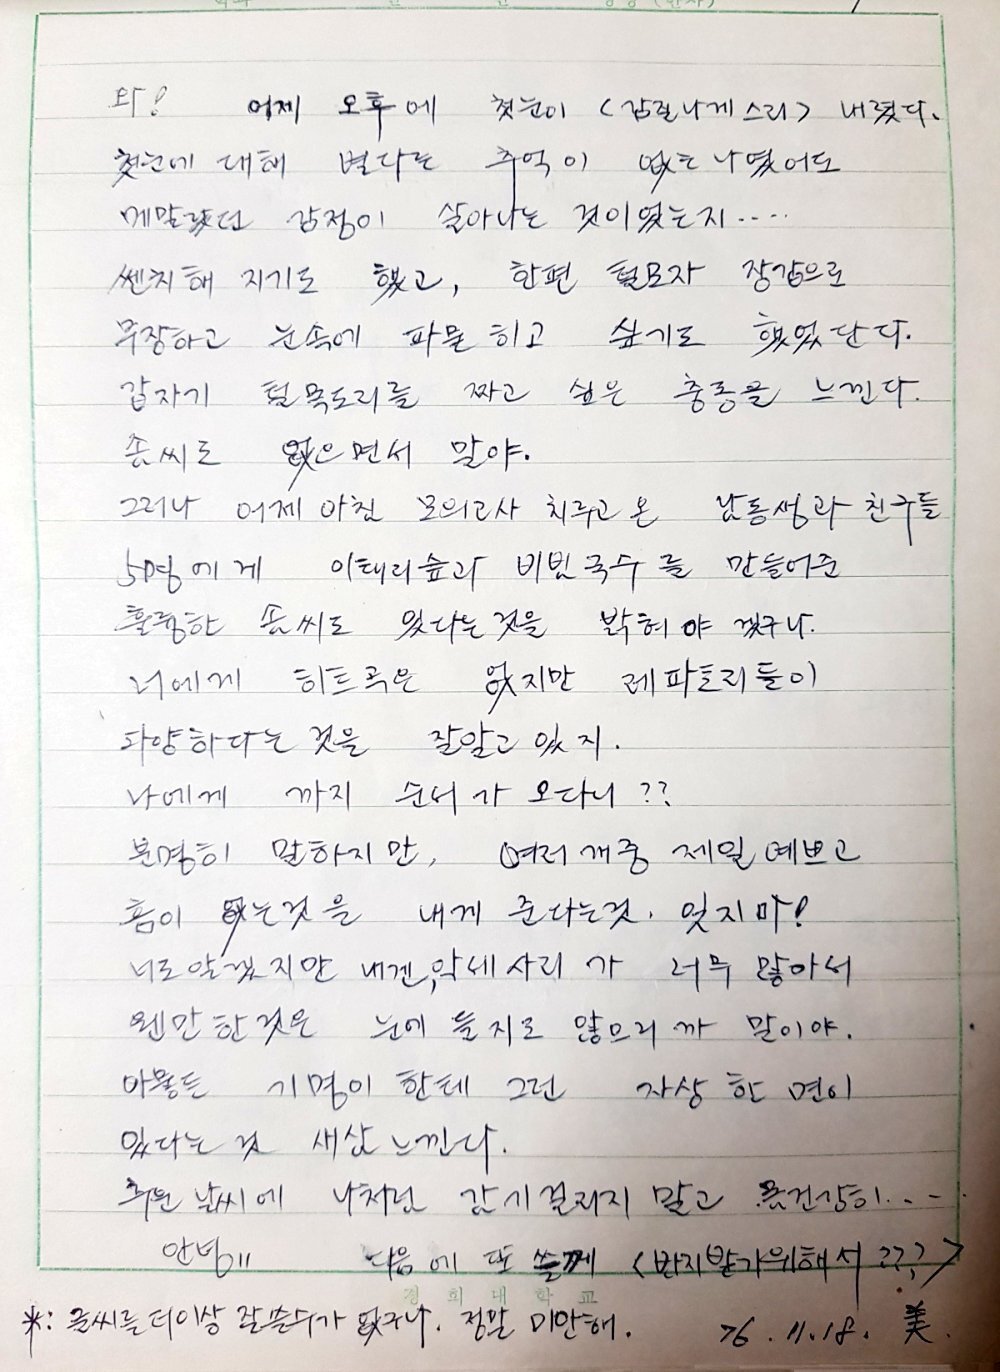 와! 어제 오후에 첫눈이 (감질나게스리) 내렸다.
첫눈에 대해 별다른 추억이 없는 나였어도
메말랐던 감정이 살아나는 것이었는지.....
쎈치해 지기도 했고, 한편 털모자 장갑으로
무장하고 눈속에 파묻히고 싶기도 했었단다.
갑자기 털목도리를 짜고 싶은 충동을 느낀다.
솜씨도 없으면서 말야.
그러나 어제아침 모의고사 치루고 온 남동생과 친구들
50명에게 이태리숲과 비빔국수를 만들어준
훌륭한 솜씨도 있다는것을 밝혀야 겠구나.
너에게 히트곡은 없지만 레파토리들이
다양하다는 것을 잘알고 있지.
나에게 까지 순서가 오다니??
분명히 말하지만, 여러개중 제일 예쁘고
흠이 없는것을 내게 준다는것. 잊지마!
너도알겠지만 내겐, 악세사리가 너무 많아서
웬만한것은 눈에 들지도 않으리까 말이야.
아뭏든 기명이한테 그런 자상한 면이
있다는 것 새삼느낀다.
추운 날씨에 나처럼 감기걸리지 말고 몸건강히...
안녕!! 다음에 또 쓸께 (반지받기위해서???)
경희대학교
*: 글씨를 더이상 잘쓸수가 없구나. 정말 미안해.
76. 11. 18. 美.